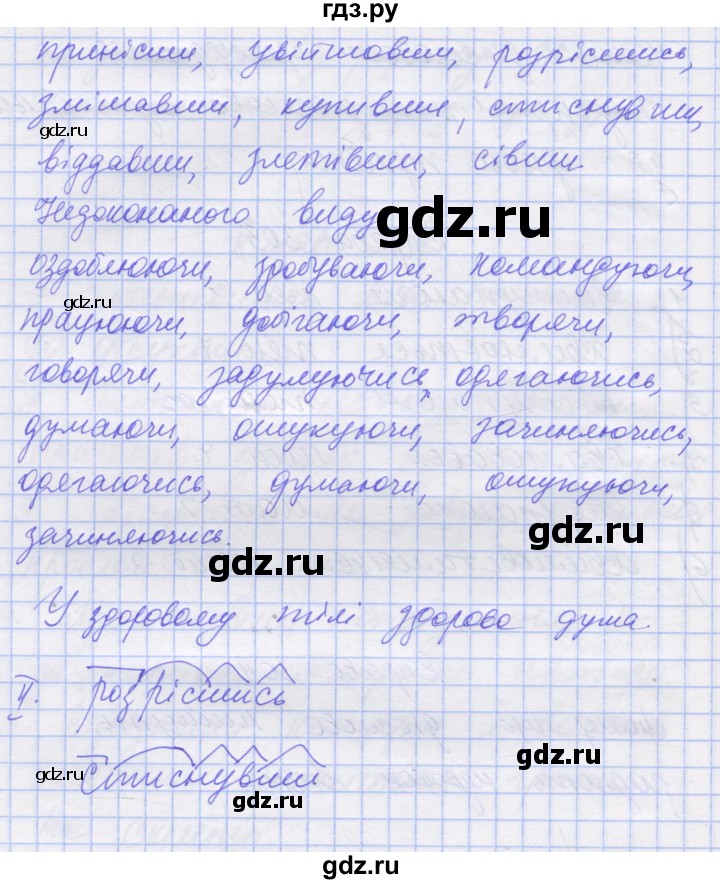 гдз.ру
принісши, увійшовши, розрісшись,
змішавши, купивши, стиснувши,
віддавши, злетівши, сівши.
Недоконаного виду
gdz.ru
оздоблюючи, здобуваючи, командуючи,
gdz.ru
працюючи, добігаючи, творячи,
говорячи, задумуючись, одягаючись,
думаючи, ошукуючи, зачиняючись,
одягаючись, думаючи, ошукуючи,
gdz.ru
зачиняючись.
gdz.ru
У здоровому тілі здорова душа.
ІІ. розрісшись
gdz.ru
gdz.ru
Стиснувши
gdz.ru
gdz.ru